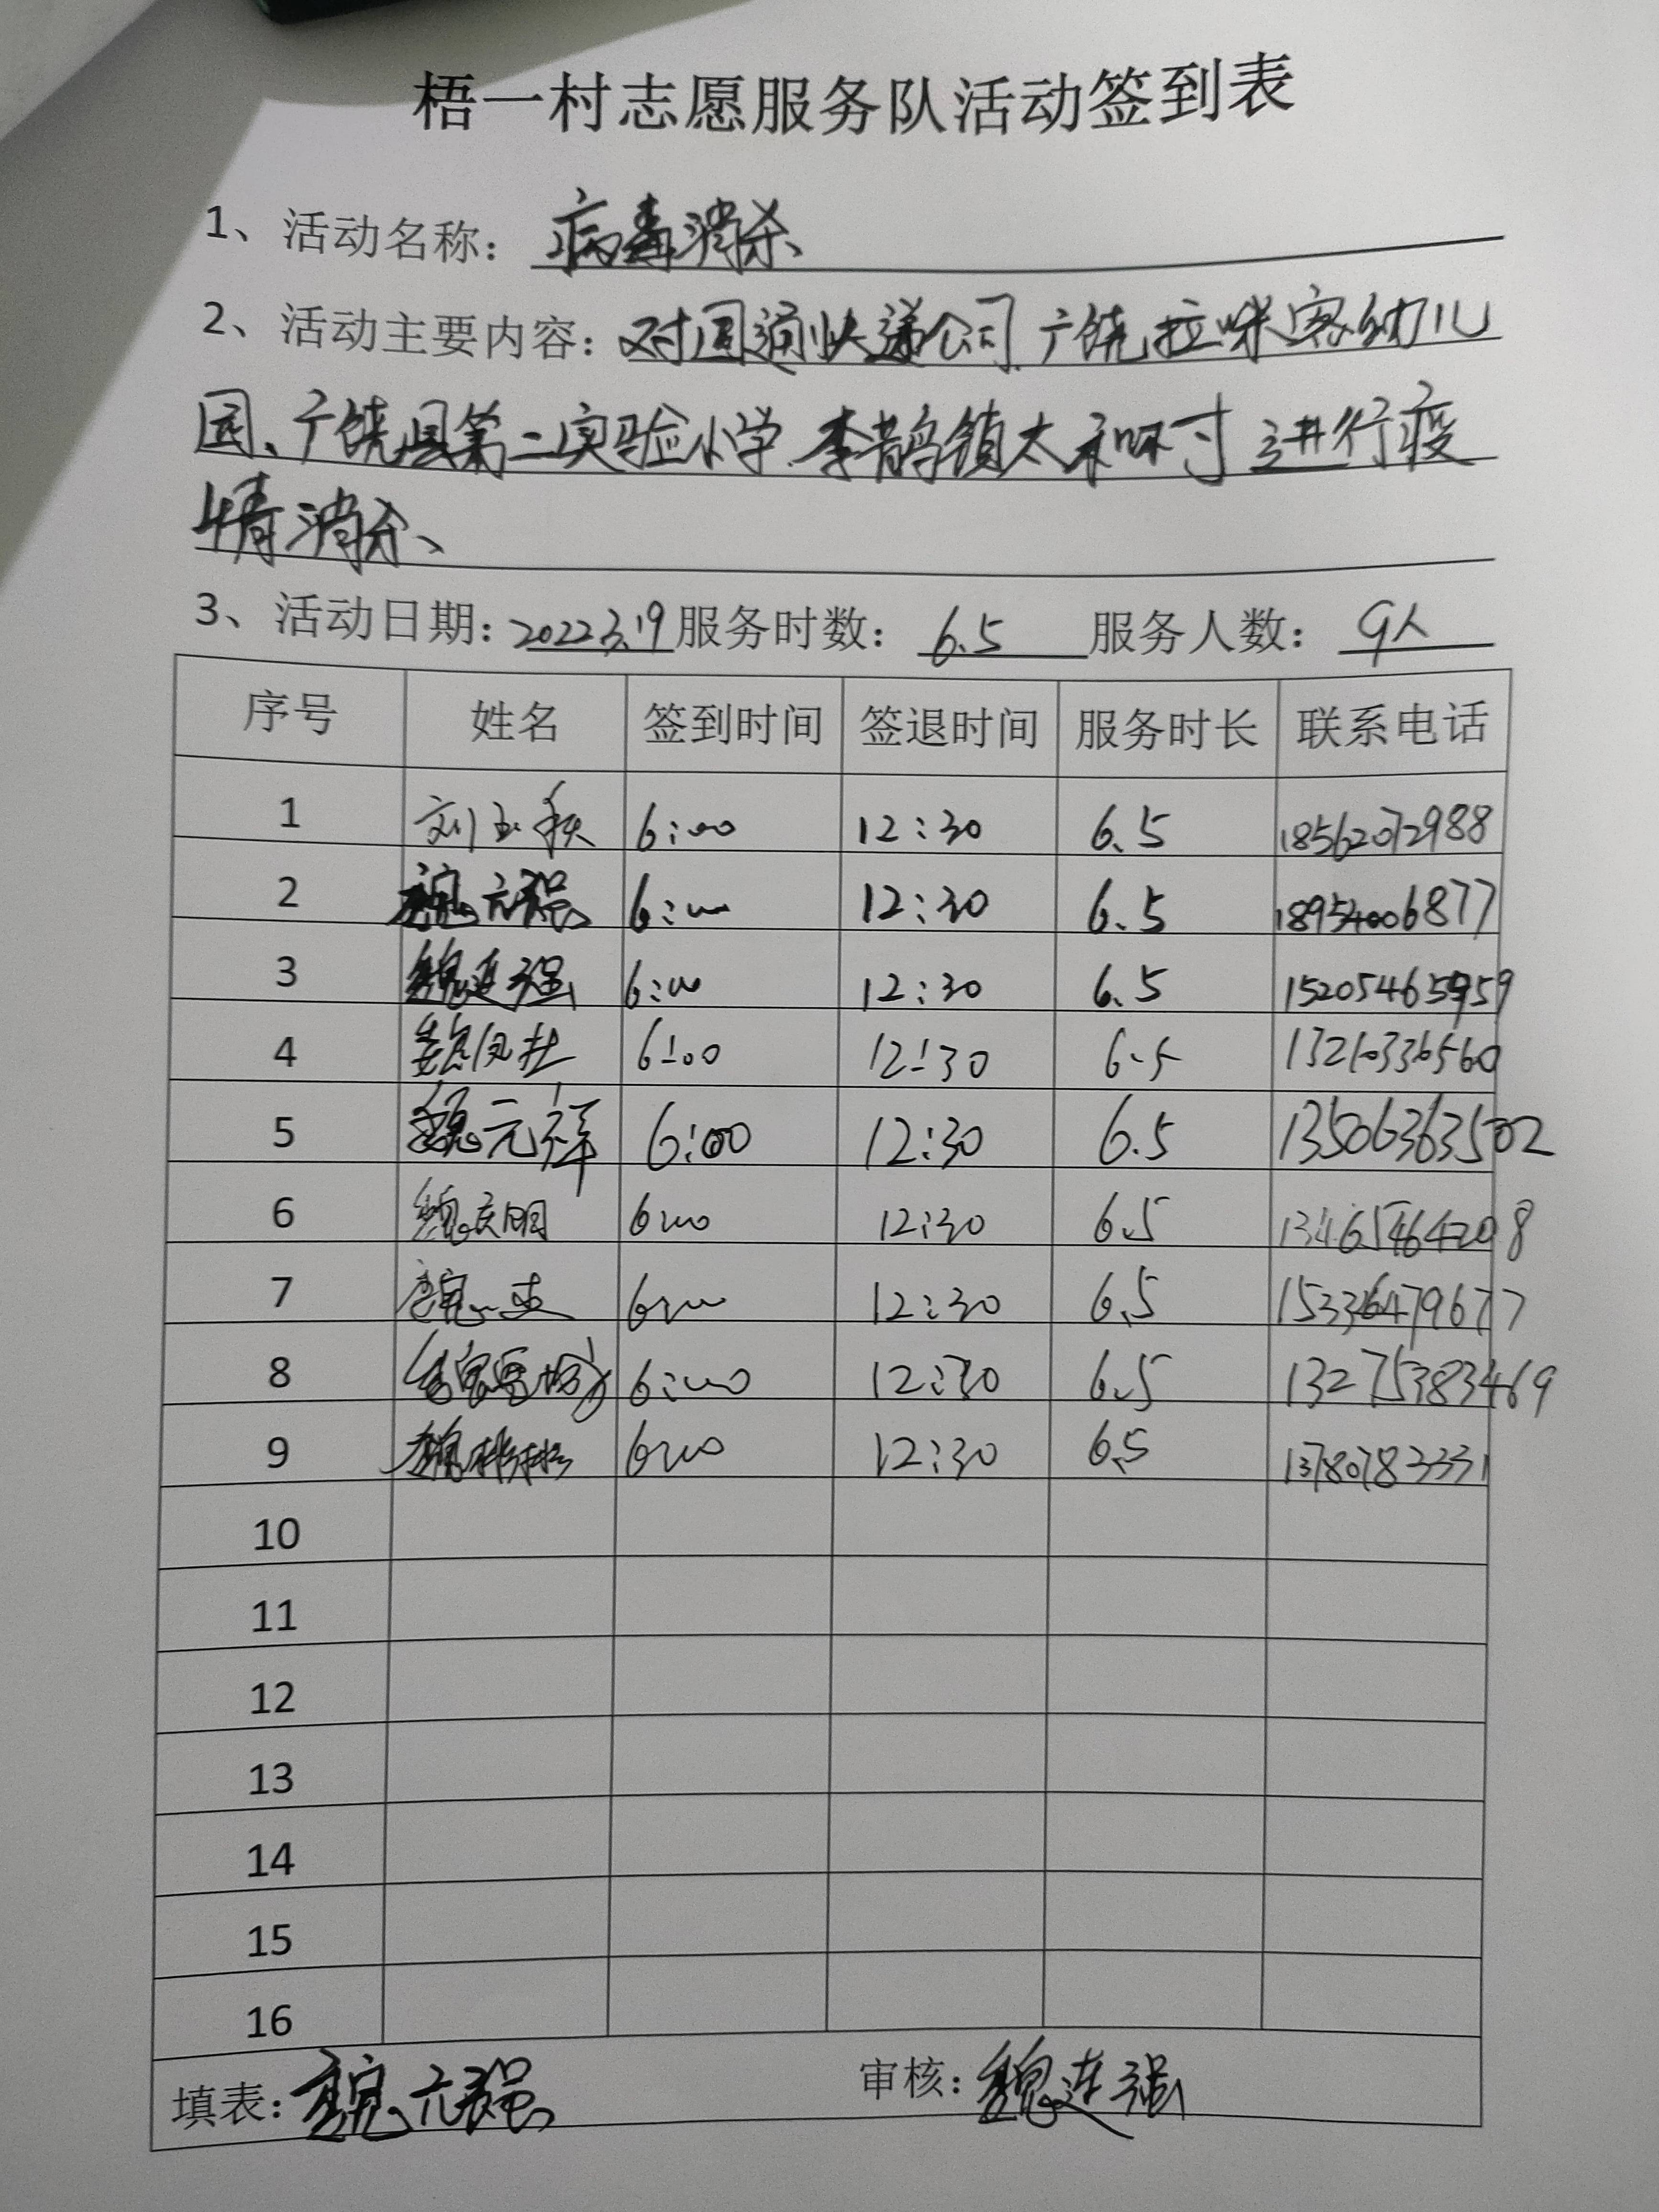 梧一村志愿服务队活动签到表
1、活动名称：病毒消杀、
2、活动主要内容：对圆通快递公司、广饶拉咪客幼儿
园、广饶县第二实验小学、李鹊镇太和村进行疫
情消杀、
3、活动日期：2022.3.19 服务时数：6.5 服务人数：9人
序号 姓名 签到时间 签退时间 服务时长 联系电话
1 刘玉秋 6:00 12:30 6.5 18562072988
2 魏元强 6:00 12:30 6.5 18954006877
3 魏连强 6:00 12:30 6.5
4 6:00 12:30 6.5 13210336560
5 魏元祥 6:00 12:30 6.5 13506363502
6 魏庆明 6:00 12:30 6.5 13465464208
7 6:00 12:30 6.5 15336479677
8 6:00 12:30 6.5 13275383469
9 6:00 12:30 6.5 13780783331
10
11
12
13
14
15
16
填表：魏元强 审核：魏连强